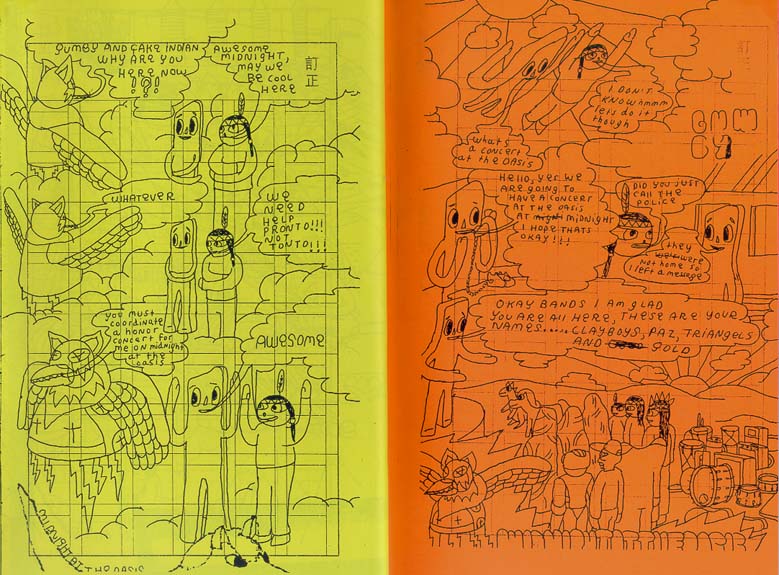 GUMBY AND CAKE INDIAN
WHY ARE YOU
HERE NOW
???
AWESOME
MIDNIGHT,
MAY WE
BE COOL
HERE
訂正
WHATEVER
WE
NEED
HELP
PRONTO!!!
NOT
TONTO!!!
YOU MUST
COORDINATE
A HONOR
CONCERT FOR
ME ON MIDNIGHT
AT THE
OASIS
AWESOME
MIDNIGHT AT
THE OASIS
I DON'T
KNOW hmmm
lets do it
though
訂正
WHATS
A CONCERT
AT THE OASIS
Hello, yer we
ARE GOING TO
HAVE A CONCERT
AT THE OASIS
AT MIDNIGHT
I HOPE THATS
OKAY!!!
DID YOU JUST
CALL THE
POLICE
they
were
NOT HOME SO
I LEFT A MESSAGE
OKAY BANDS I AM GLAD
YOU ARE ALL HERE, THESE ARE YOUR
NAMES..... CLAYBOYS, PAZ, TRIANGELS
AND GOLD